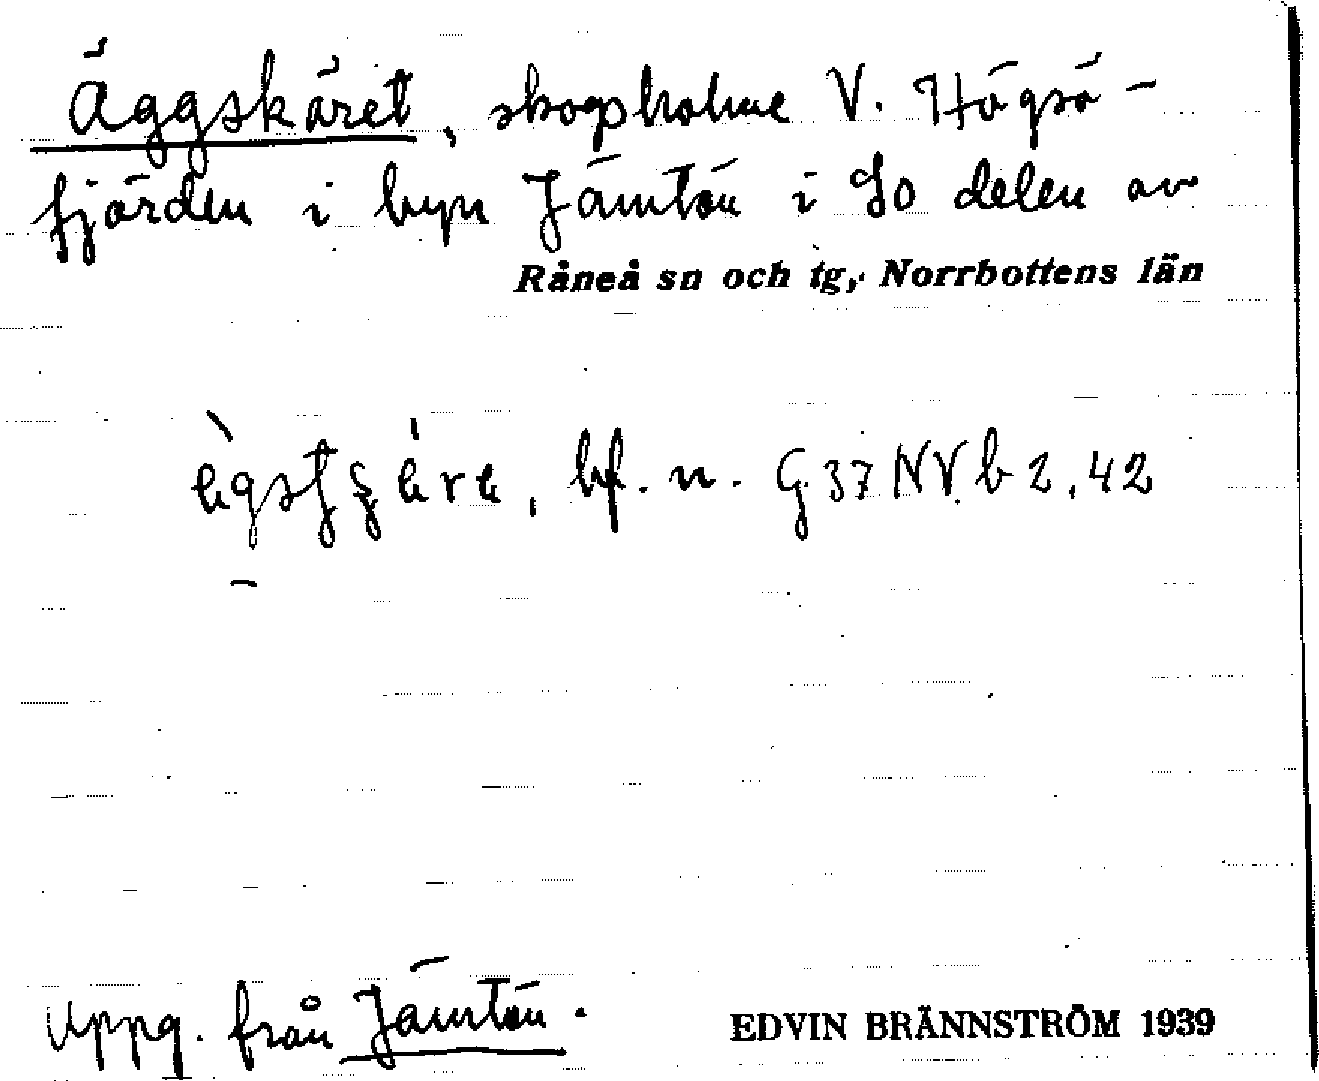 Äggskäret, skogsholme V. Högsö-
fjärden i byn Jämtön i So delen av
Råneå sn och tg, Norrbottens län
bf. n. G 37 NV b 2, 42
Uppg. från Jämtön.
EDVIN BRÄNNSTRÖM 1939